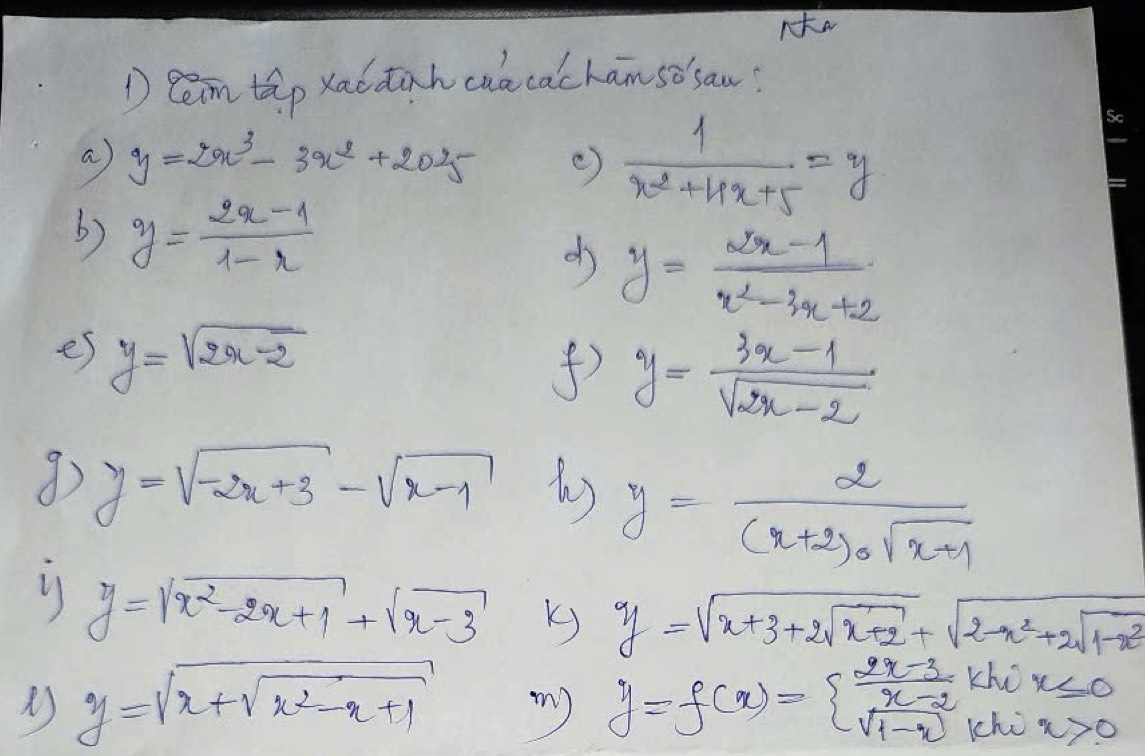 Nhа
1) Tìm tập xác định của các hàm số sau:
a) y = 2x³ - 3x² + 2025
c) 1/(x² + 4x + 5) = y
b) y = (2x - 1)/(1 - x)
d) y = (2x - 1)/(x² - 3x + 2)
e) y = √(2x - 2)
f) y = (3x - 1)/√(2x - 2)
g) y = √(-2x + 3) - √(x - 1)
h) y = 2/((x + 2).√(x + 1))
i) y = √(x² - 2x + 1) + √(x - 3)
k) y = √(x + 3 + 2√(x + 2)) + √(2 - x² + 2√(1 - x²))
l) y = √(x + √(x² - x + 1))
m) y = f(x) = { (2x - 3)/(x - 2) khi x ≤ 0
√(1 - x) khi x > 0
Sc